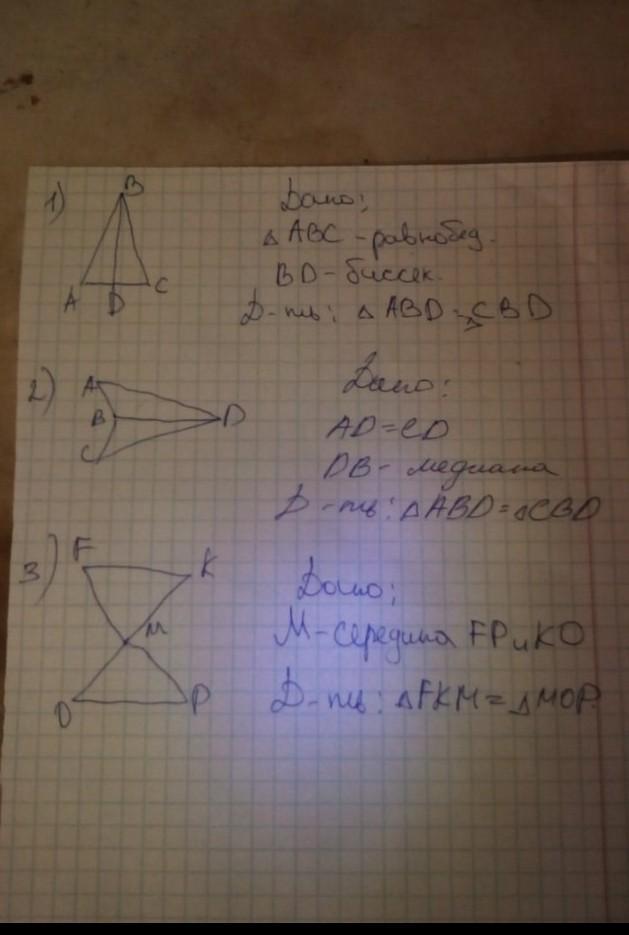 1) B
A D C
Дано:
△ABC - равнобед.
BD - биссек.
Д-ть: △ABD = △CBD
2) A
B D
C
Дано:
AD = CD
DB - медиана
Д-ть: △ABD = △CBD
3) F K
M
O P
Дано:
M - середина FP и KO
Д-ть: △FKM = △MOP